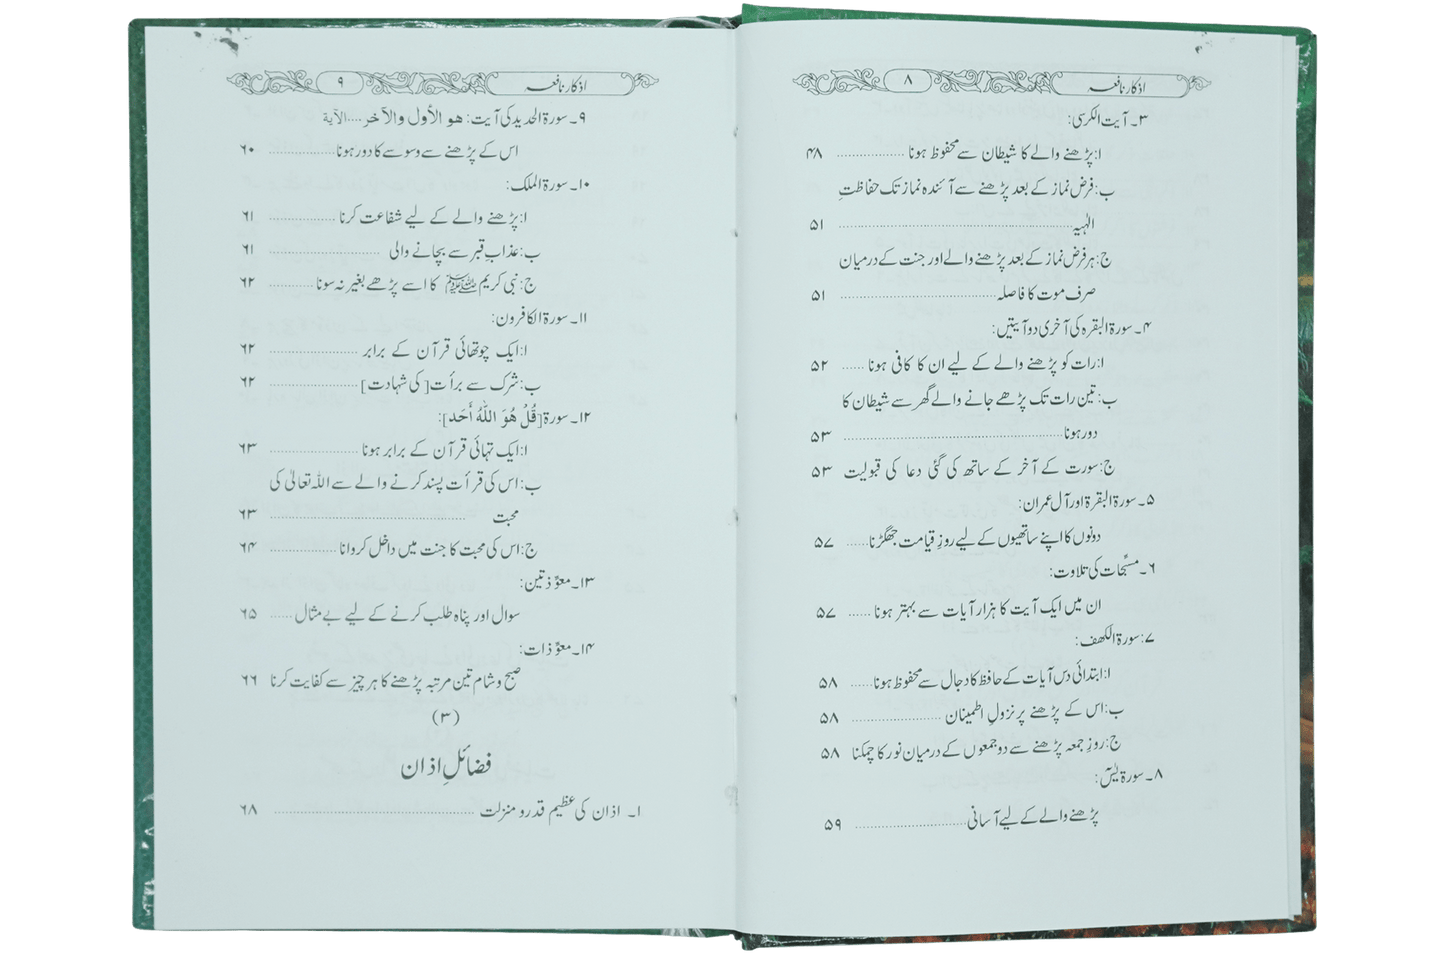 اذکار نافعہ ۸
۳۔ آیت الکرسی:
ا: پڑھنے والے کا شیطان سے محفوظ ہونا .................. ۴۸
ب: فرض نماز کے بعد پڑھنے سے آئندہ نماز تک حفاظتِ
الٰہیہ .................. ۵۱
ج: ہر فرض نماز کے بعد پڑھنے والے اور جنت کے درمیان
صرف موت کا فاصلہ .................. ۵۱
۴۔ سورۃ البقرہ کی آخری دو آیتیں:
ا: رات کو پڑھنے والے کے لیے ان کا کافی ہونا ...... ۵۲
ب: تین رات تک پڑھے جانے والے گھر سے شیطان کا
دور ہونا .................. ۵۳
ج: سورت کے آخر کے ساتھ کی گئی دعا کی قبولیت ۵۳
۵۔ سورۃ البقرۃ اور آل عمران:
دونوں کا اپنے ساتھیوں کے لیے روزِ قیامت جھگڑنا ...... ۵۷
۶۔ مسبِّحات کی تلاوت:
ان میں ایک آیت کا ہزار آیات سے بہتر ہونا ...... ۵۷
۷: سورۃ الکھف:
ا: ابتدائی دس آیات کے حافظ کا دجال سے محفوظ ہونا ...... ۵۸
ب: اس کے پڑھنے پر نزولِ اطمینان .................. ۵۸
ج: روزِ جمعہ پڑھنے سے دو جمعوں کے درمیان نور کا چمکنا ۵۸
۸۔ سورۃ یٰسٓ:
پڑھنے والے کے لیے آسانی .................. ۵۹
اذکار نافعہ ۹
۹۔ سورۃ الحدید کی آیت: هو الأول والآخر....الآية
اس کے پڑھنے سے وسوسے کا دور ہونا .................. ۶۰
۱۰۔ سورۃ الملک:
ا: پڑھنے والے کے لیے شفاعت کرنا .................. ۶۱
ب: عذابِ قبر سے بچانے والی .................. ۶۱
ج: نبی کریم ﷺ کا اسے پڑھے بغیر نہ سونا ............ ۶۲
۱۱۔ سورۃ الکافرون:
ا: ایک چوتھائی قرآن کے برابر .................. ۶۲
ب: شرک سے برأت [کی شہادت] .................. ۶۲
۱۲۔ سورۃ [قُلْ هُوَ اللّٰهُ أَحَد]:
ا: ایک تہائی قرآن کے برابر ہونا .................. ۶۳
ب: اس کی قرأت پسند کرنے والے سے اللہ تعالیٰ کی
محبت .................. ۶۳
ج: اس کی محبت کا جنت میں داخل کروانا .................. ۶۴
۱۳۔ معوِّذتین:
سوال اور پناہ طلب کرنے کے لیے بے مثال ...... ۶۵
۱۴۔ معوِّذات:
صبح و شام تین مرتبہ پڑھنے کا ہر چیز سے کفایت کرنا ۶۶
(۳)
فضائلِ اذان
۱۔ اذان کی عظیم قدر و منزلت .................. ۶۸